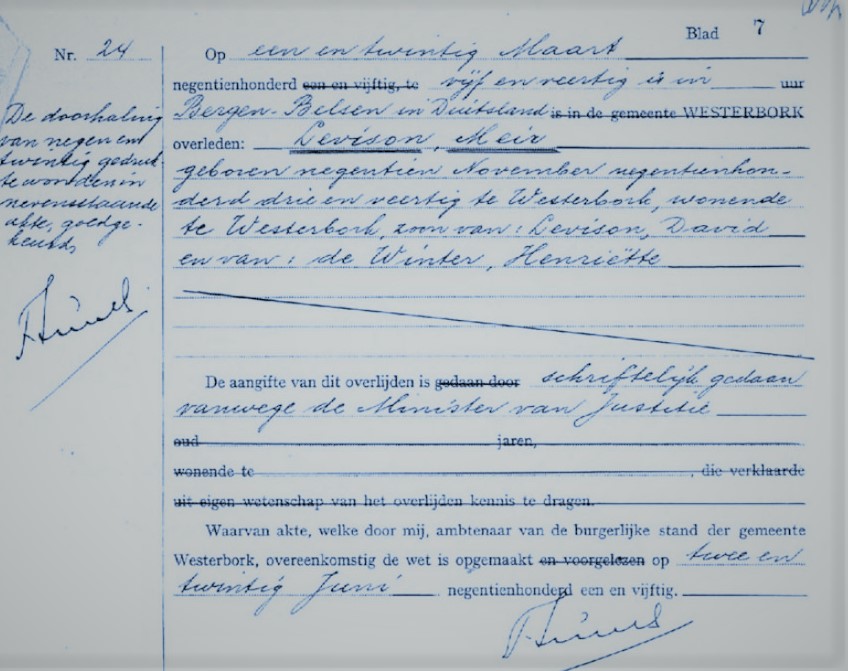 Blad 7
Nr. 24
Op een en twintig Maart
negentienhonderd een en vijftig, te vijf en veertig is in uur
Bergen-Belsen in Duitsland is in de gemeente WESTERBORK
overleden: Levison, Meir
geboren negentien November negentienhon-
derd drie en veertig te Westerbork, wonende
te Westerbork, zoon van: Levison, David
en van: de Winter, Henriëtte
De aangifte van dit overlijden is gedaan door schriftelijk gedaan
vanwege de Minister van Justitie
oud jaren,
wonende te , die verklaarde
uit eigen wetenschap van het overlijden kennis te dragen.
Waarvan akte, welke door mij, ambtenaar van de burgerlijke stand der gemeente
Westerbork, overeenkomstig de wet is opgemaakt en voorgelezen op twee en
twintig Juni negentienhonderd een en vijftig.
De doorhaling
van negen en
twintig gedruk-
te woorden in
nevenstaande
akte, goedge-
keurd,